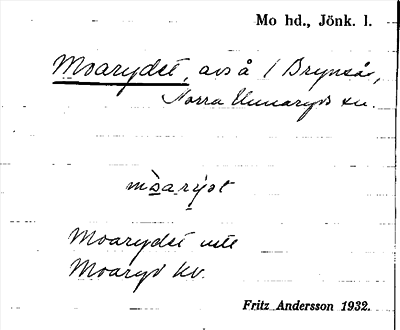 Mo hd., Jönk. l.
Moarydet, avs å 1 Brynsås,
Norra Unnaryds sn.
Moarydet
Moaryd kv.
Fritz Andersson 1932.